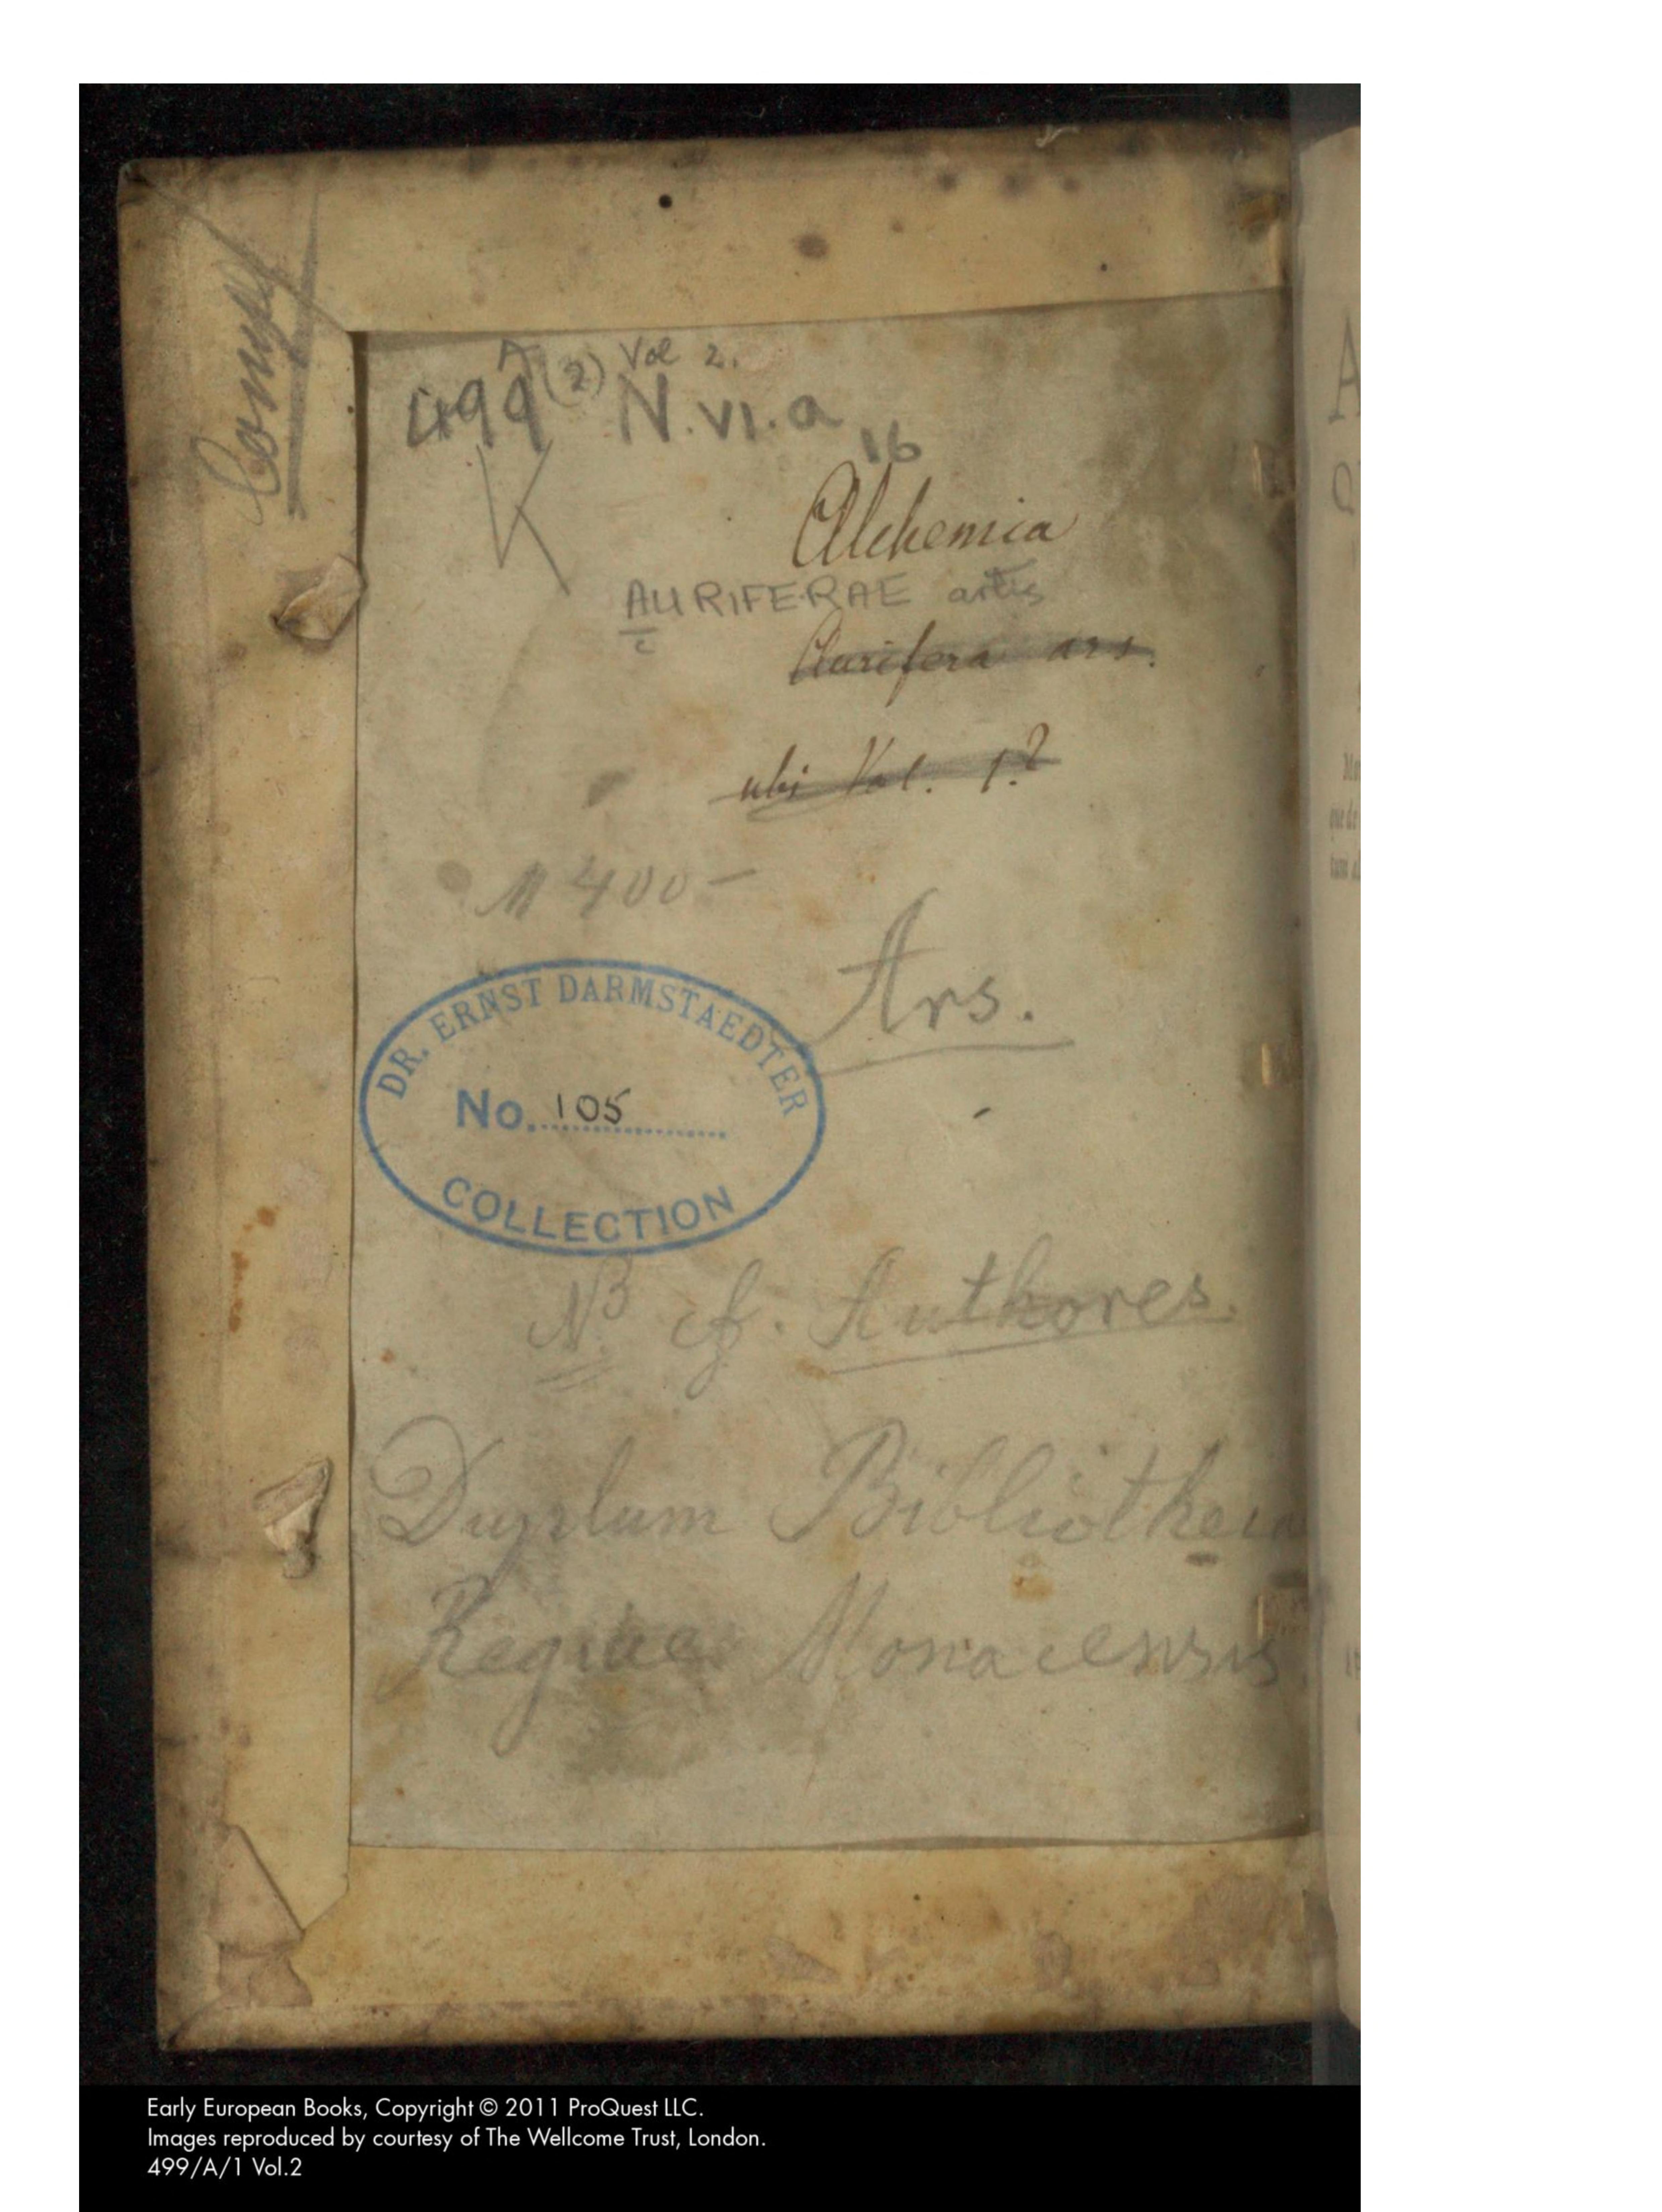 A (2) Vol 2.
499 N.VI.a
16
Alchemia
AURIFERAE artis
c
Aurifera ars.
ubi Vol. 1?
M 400-
Ars.
DR. ERNST DARMSTAEDTER
No. 105
COLLECTION
NB cf. Authores.
Duplum Bibliothecae
Regiae Monacensis
Early European Books, Copyright © 2011 ProQuest LLC.
Images reproduced by courtesy of The Wellcome Trust, London.
499/A/1 Vol.2